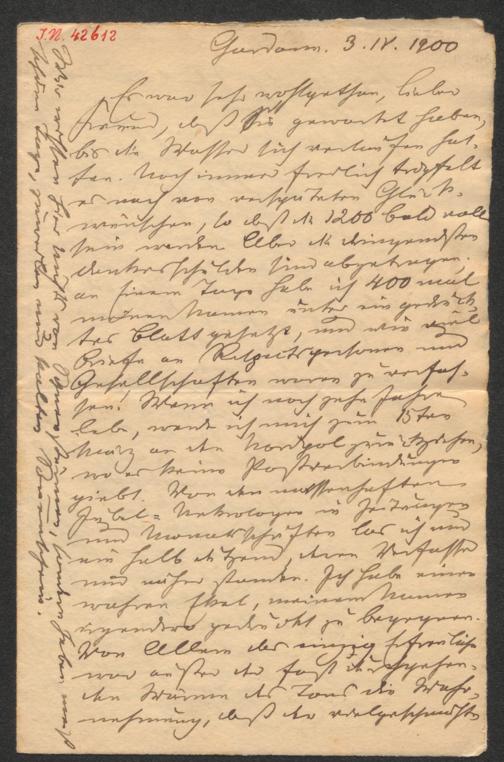 J.N. 42612
Gardone. 3. IV. 1900
Es war sehr wohlgethan, lieber
Freund, daß Sie gewartet haben,
bis die Wasser sich verlaufen hat-
ten. Noch immer freilich tröpfelt
es nach von verspäteten Glück-
wünschen, so daß die 1200 bald voll
sein werden. Aber die dringendsten
Dankesschulden sind abgetragen.
an Einem Tage habe ich 400 mal
meinen Namen unter ein gedruck-
tes Blatt gesetzt, und wie viel
Briefe an Respectspersonen und
Gesellschaften waren zu verfas-
sen! Wenn ich noch zehn Jahre
lebe, werde ich mich zum 15ten
März an den Nordpol zurückziehen,
wo es keine Postverbindungen
giebt. Von den massenhaften
Jubel-Nekrologen in Zeitungen
und Monatsschriften las ich nur
ein halb dutzend, deren Verfasser
mir näher standen. Ich habe einen
wahren Ekel, meinem Namen
irgendwo gedruckt zu begegnen.
Von Allem das einzig Erfreuliche
war außer der fast durchgehen-
den Wärme des Tons die Wahr-
nehmung, daß der vielgeschmähte